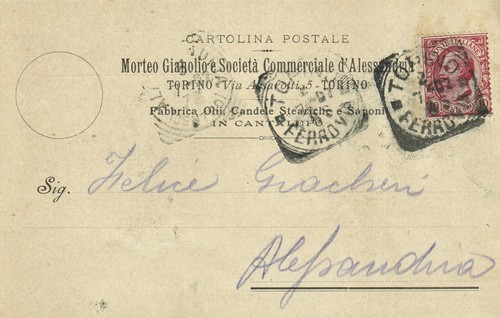 CARTOLINA POSTALE
Morteo Gianolio e Società Commerciale d'Alessandria
TORINO - Via Assarotti, 5 - TORINO
Fabbrica Olii, Candele Steariche e Saponi
IN CANTALUPO
TORINO
FERROVIA
TORINO
FERROVIA
Sig. Felice
Alessandria